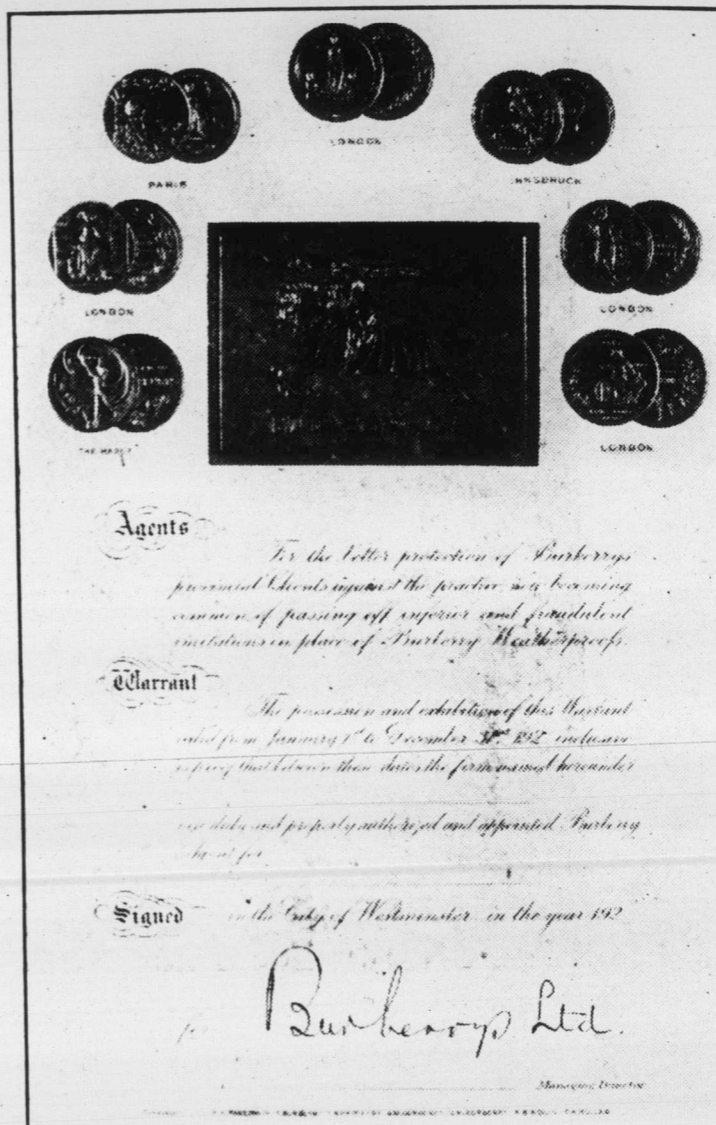 LONDON
PARIS
INNSBRUCK
LONDON
LONDON
THE HAGUE
LONDON
Agents
For the better protection of Burberrys
provincial Clients against the practice now becoming
common of passing off inferior and fraudulent
imitations in place of Burberry Weatherproofs.
Warrant
The possession and exhibition of this Warrant
valid from January 1st to December 31st 192 inclusive
that between these dates the firm named hereunder
duly and properly authorized and appointed Burberry
for
Signed in the City of Westminster in the year 192
for Burberrys Ltd.
Managing Director